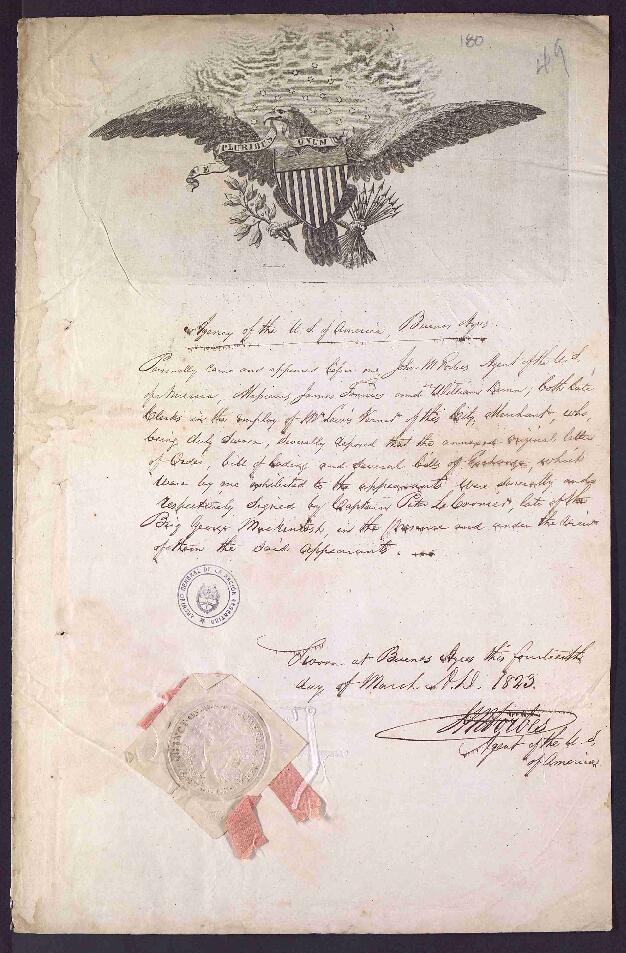 180
49
E PLURIBUS UNUM
Agency of the U S of America, Buenos Ayres.
Personally came and appeared before me, John M Forbes Agent of the U. S.
of America, Messieurs James and William Dunn, both late
Clerks in the employ of Mr Louis Vernet of this City, Merchant, who
being duly Sworn, severally deposed that the annexed original letters
of Order, bill of lading and several bills of Exchange, which
were by me exhibited to the appearants were severally and
respectively signed by Captain Peter Le late of the
Brig George Mackintosh, in the presence and under the
of them the said appearants.
ARCHIVO GENERAL DE LA NACION ARGENTINA
Sworn at Buenos Ayres this fourteenth
day of March A.D. 1823.
JM Forbes
Agent of the U. S,
of America